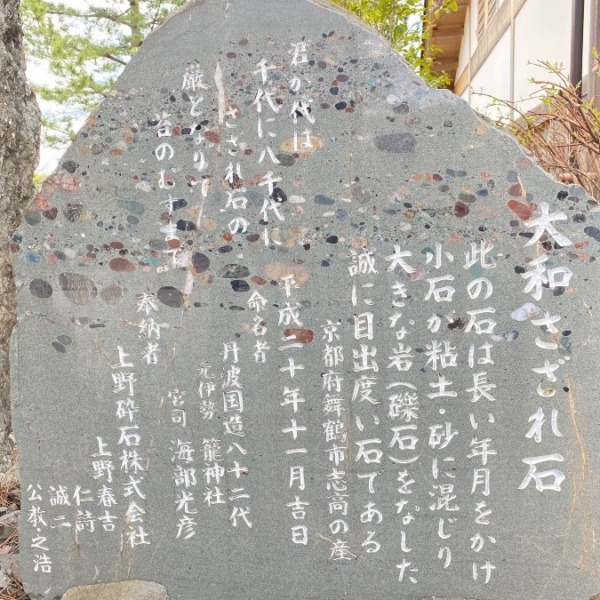 大和さざれ石
此の石は長い年月をかけ
小石が粘土・砂に混じり
大きな岩(礫石)をなした
誠に目出度い石である
京都府舞鶴市志高の産
平成二十年十一月吉日
命名者
丹波国造八十二代
元伊勢 籠神社
宮司 海部光彦
君が代は
千代に八千代に
さざれ石の
巌となりて
苔のむすまで
奉納者
上野砕石株式会社
上野春吉
仁詩
誠二
公教・之浩